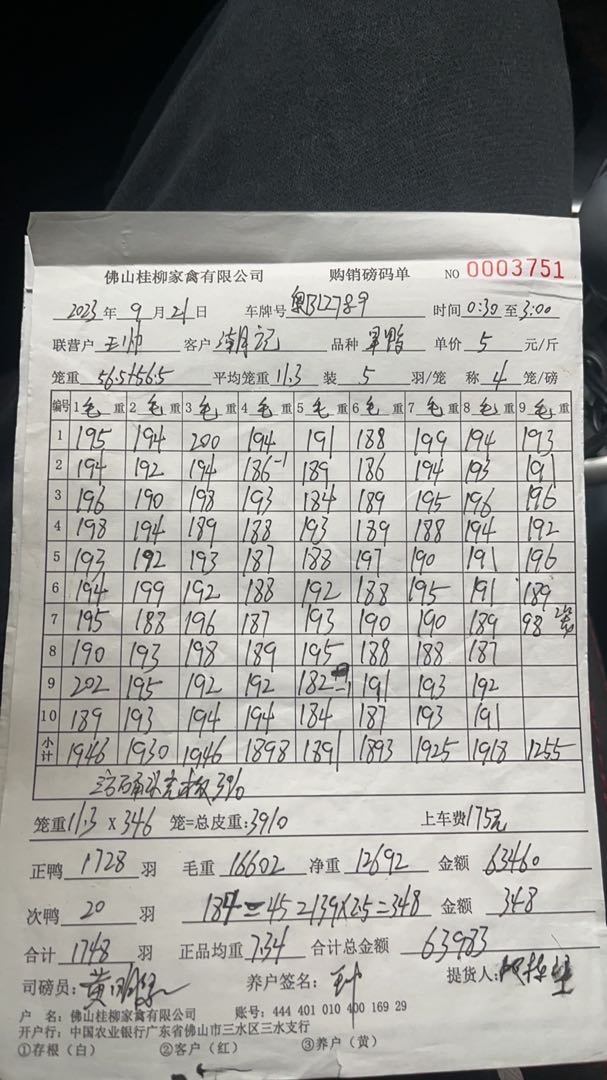 佛山桂柳家禽有限公司 购销磅码单 NO 0003751
2023年9月21日 车牌号 时间 0:30至3:00
联营户 王帅 客户 潮记 品种 单价 5 元/斤
笼重 56.5+56.5 平均笼重 11.3 装 5 羽/笼 称 4 笼/磅
编号 1 毛 重 2 毛 重 3 毛 重 4 毛 重 5 毛 重 6 毛 重 7 毛 重 8 毛 重 9 毛 重
1 195 194 200 194 191 188 199 194 193
2 194 192 194 186-1 189 186 194 193 191
3 196 190 198 193 184 189 195 196 196
4 198 194 189 188 193 189 188 194 192
5 193 192 193 187 188 197 190 191 196
6 194 199 192 188 192 188 195 191 189
7 195 188 196 187 193 190 190 189 98 2笼
8 190 193 198 189 195 188 188 187
9 202 195 192 192 182-1 191 193 192
10 189 193 194 194 184 187 193 191
小计 1946 1930 1946 1898 1891 1893 1925 1918 1255
笼重 11.3 X 346 笼=总皮重:3910 上车费175元
正鸭 1728 羽 毛重 16602 净重 12692 金额 63460
次鸭 20 羽 184-45=139X2.5=348 金额 348
合计 1748 羽 正品均重 7.34 合计总金额 63983
司磅员: 养户签名: 提货人:
户 名: 佛山桂柳家禽有限公司 账号: 444 401 010 400 169 29
开户行: 中国农业银行广东省佛山市三水区三水支行
①存根（白） ②客户（红） ③养户（黄）